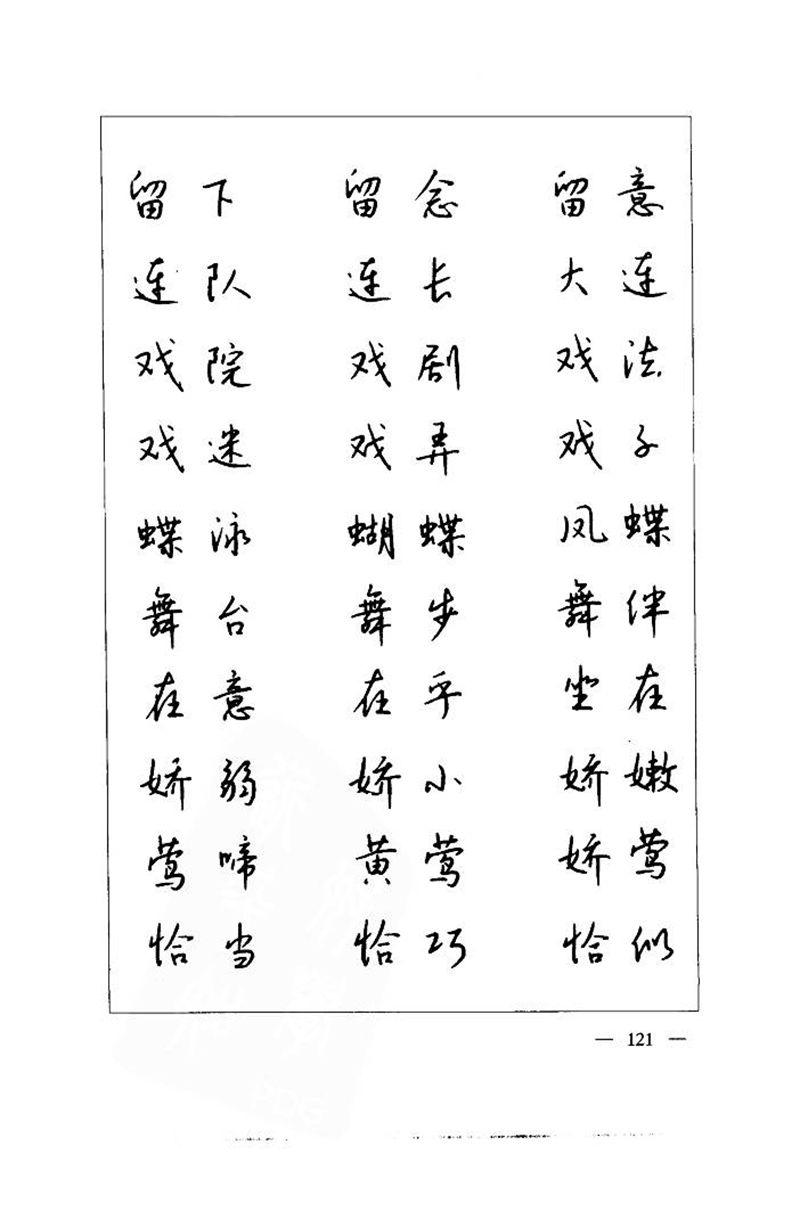 留下 留念 留意
连队 连长 大连
戏院 戏剧 戏法
戏迷 戏弄 戏子
蝶泳 蝴蝶 凤蝶
舞台 舞步 舞伴
在意 在乎 坐在
娇弱 娇小 娇嫩
莺啼 黄莺 娇莺
恰当 恰巧 恰似
— 121 —